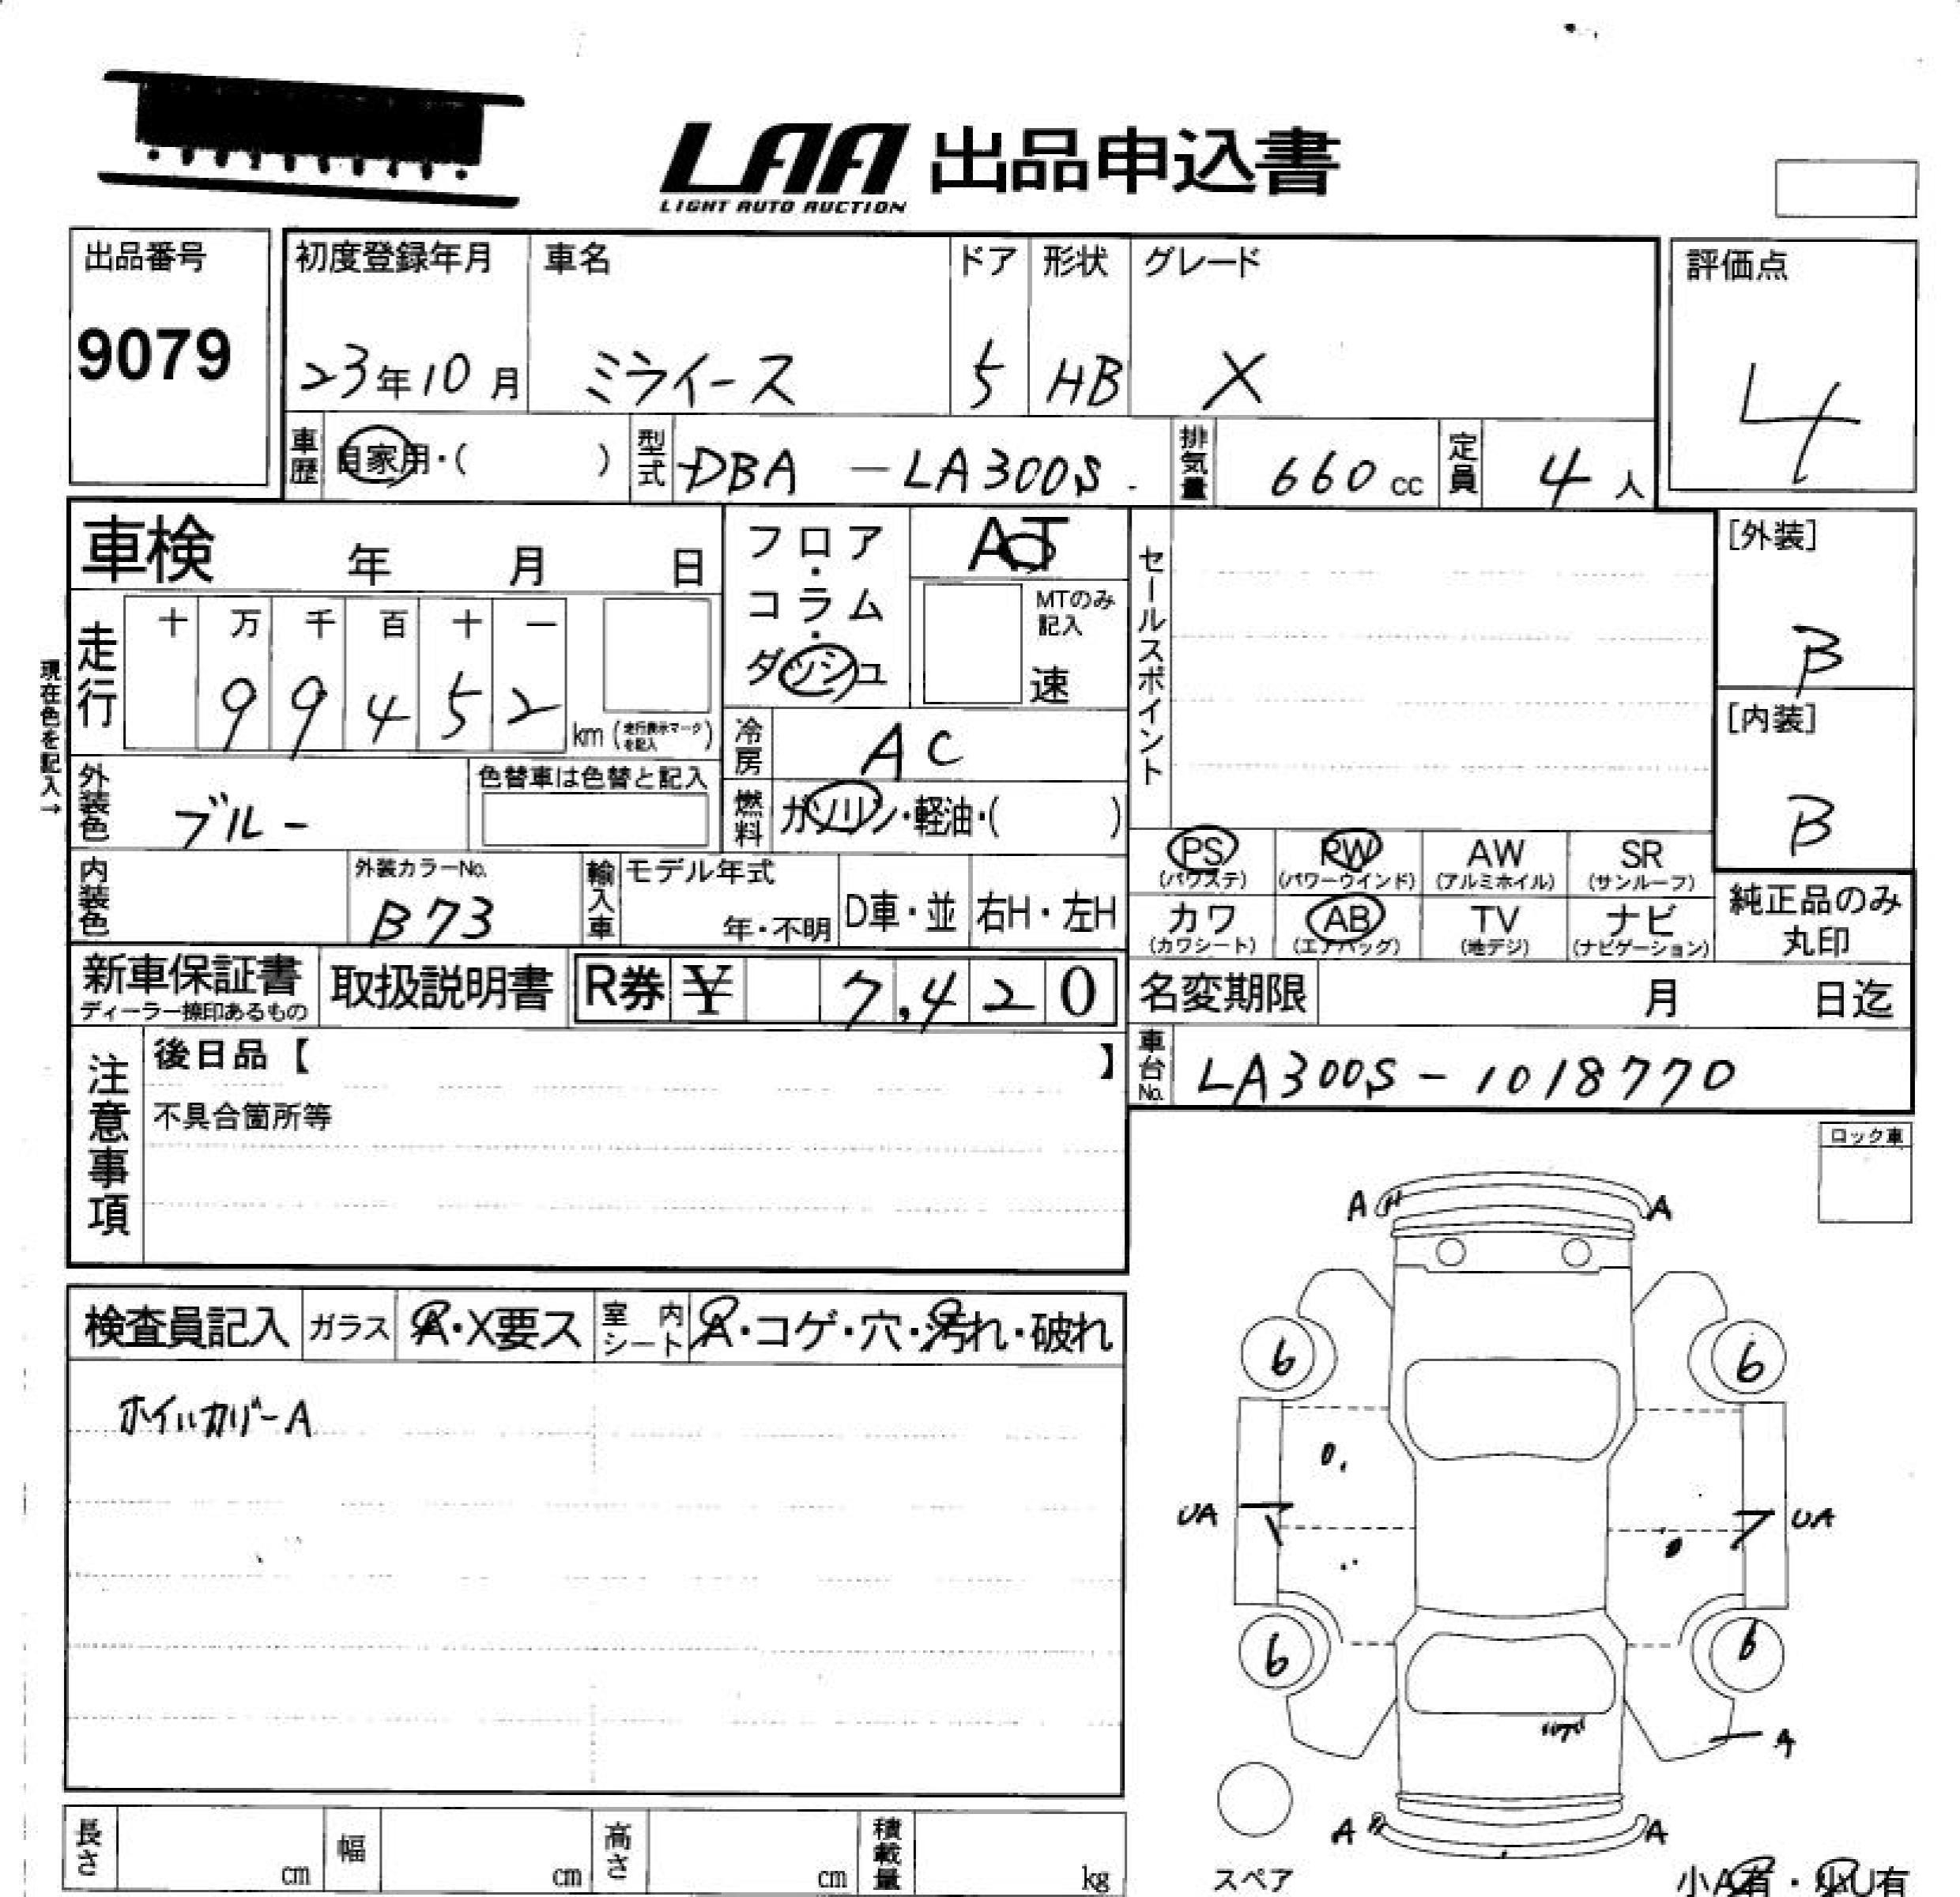 LAA 出品申込書
LIGHT AUTO AUCTION
出品番号
9079
初度登録年月 車名 ドア 形状 グレード
23年10月 ミライース 5 HB X
評価点
4
車歴 自家用・( ) 型式 DBA - LA300S 排気量 660 cc 定員 4人
車検 年 月 日
フロア・コラム・ダッシュ
AT
MTのみ記入
速
セールスポイント
[外装]
B
[内装]
B
現在色を記入→
走行 十 万 千 百 十 一
99452 km (走行表示マークを記入)
冷房 AC
外装色 ブルー 色替車は色替と記入
燃料 ガソリン・軽油・( )
内装色 外装カラーNo. B73
輸入車 モデル年式 年・不明 D車・並 右H・左H
PS (パワステ) PW (パワーウインド) AW (アルミホイル) SR (サンルーフ)
カワ (カワシート) AB (エアバッグ) TV (地デジ) ナビ (ナビゲーション)
純正品のみ丸印
新車保証書 ディーラー捺印あるもの 取扱説明書 R券 ¥ 7,420
名変期限 月 日迄
車台No. LA300S-1018770
注意事項
後日品【 】
不具合箇所等
ロック車
検査員記入 ガラス A・X要ス 室内シート A・コゲ・穴・汚れ・破れ
ホイルカバーA
A A
6 6
UA UA
6 6
A
A A
スペア
長さ cm 幅 cm 高さ cm 積載量 kg
小A有・小U有